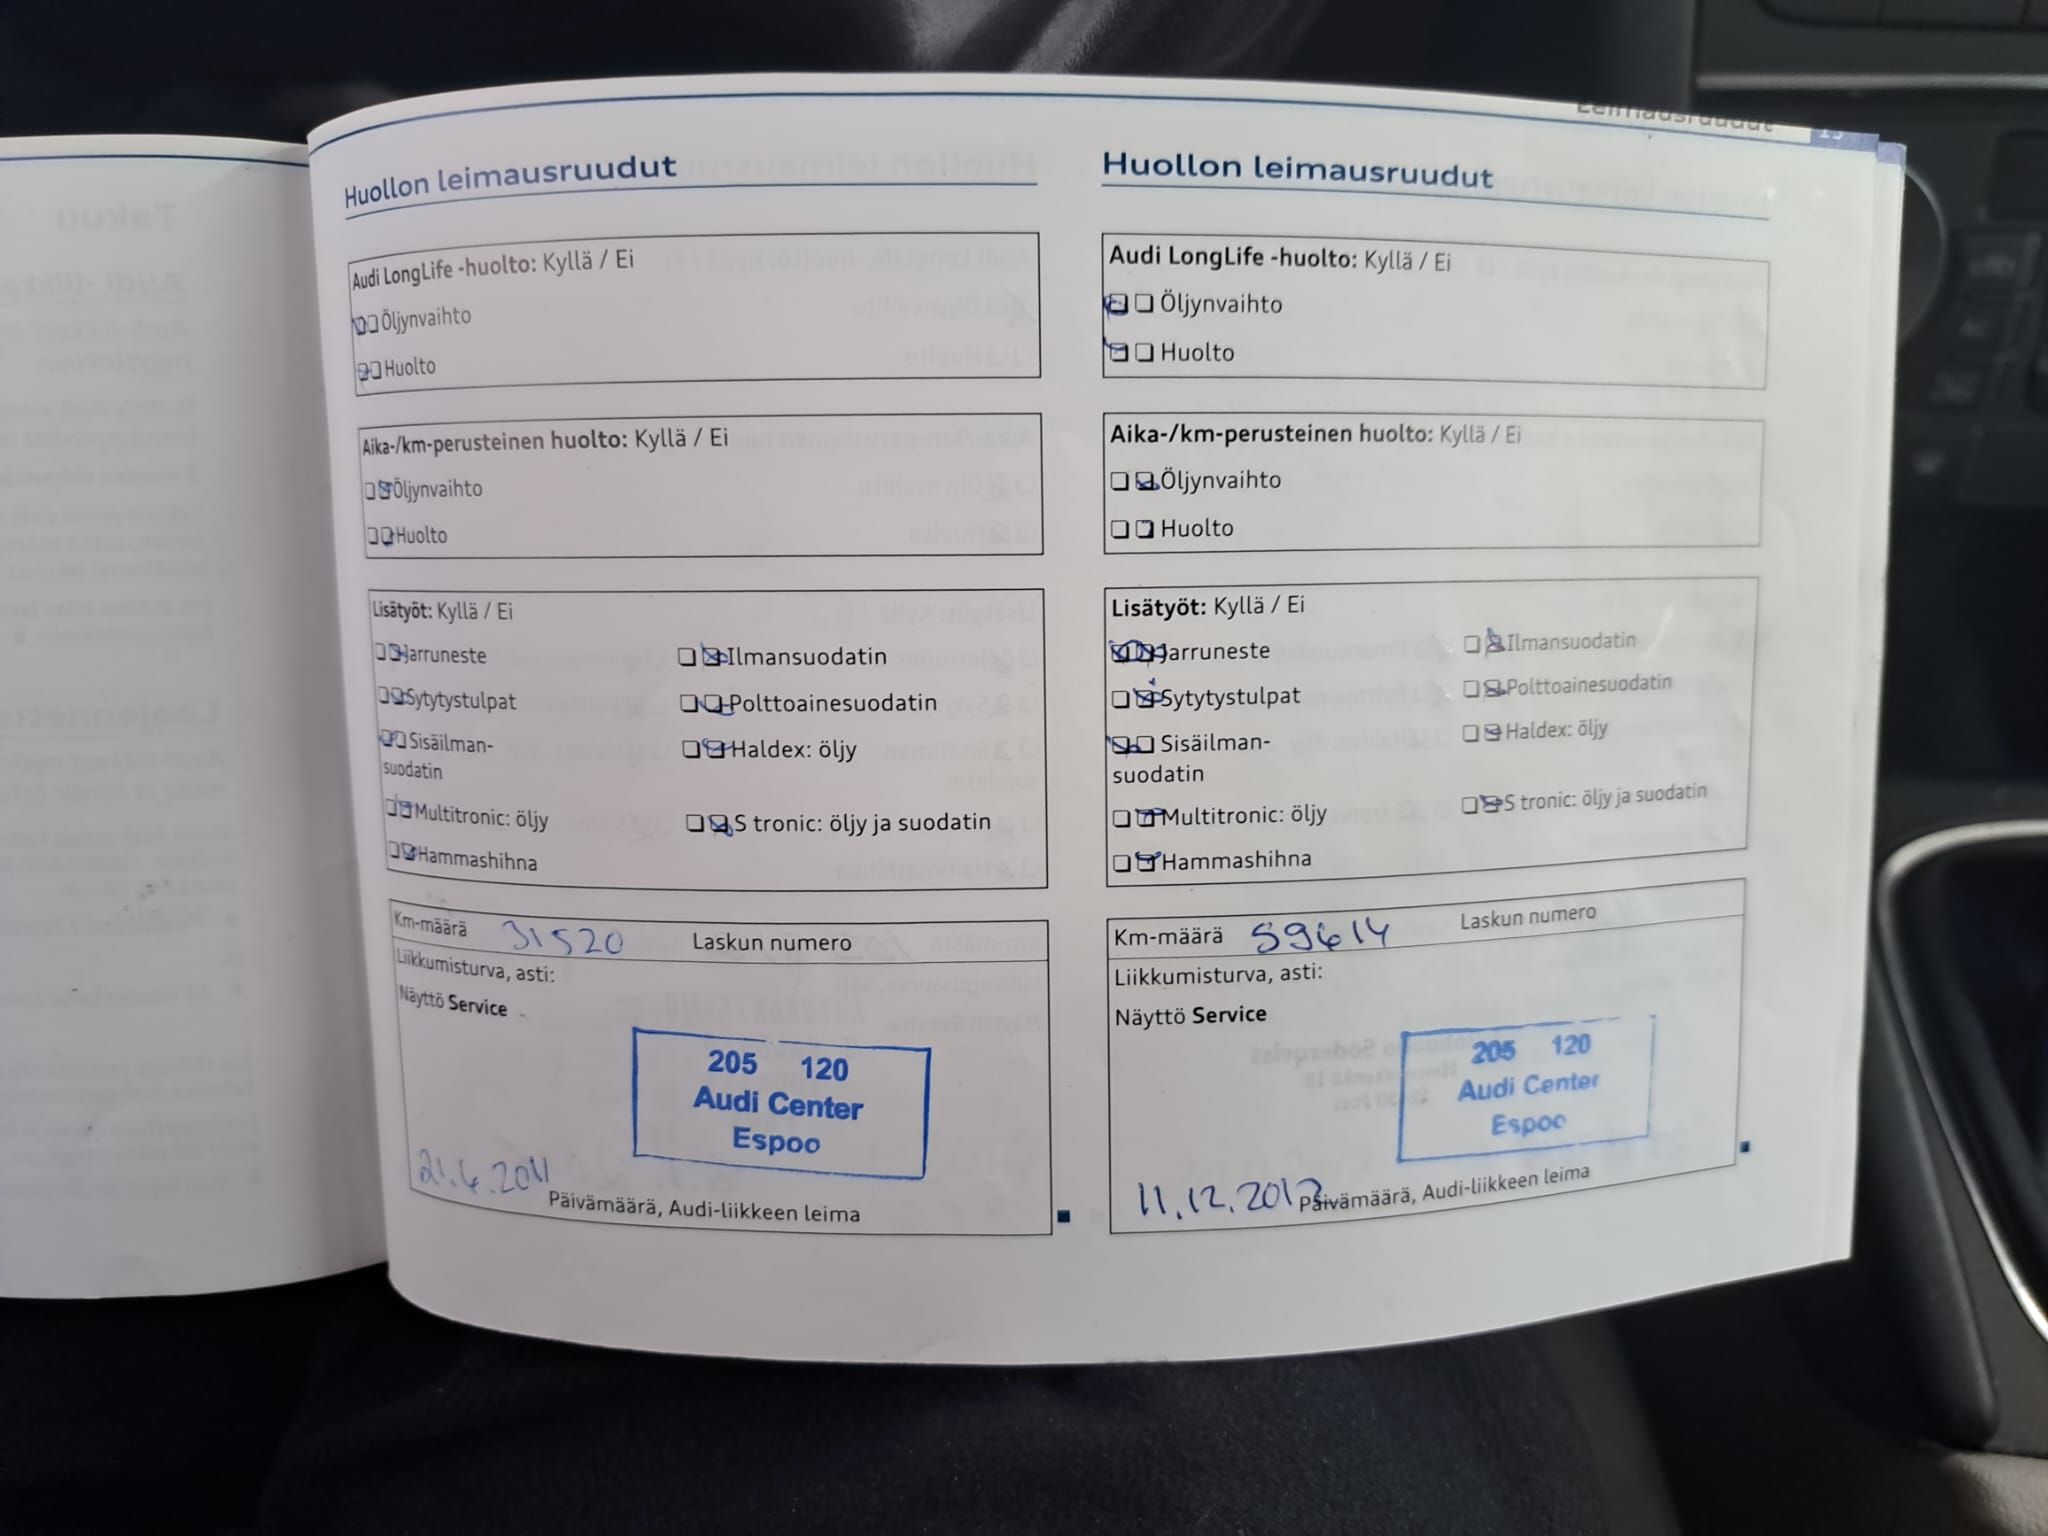 Leimausruudut
Huollon leimausruudut
Audi LongLife -huolto: Kyllä / Ei
Öljynvaihto
Huolto
Aika-/km-perusteinen huolto: Kyllä / Ei
Öljynvaihto
Huolto
Lisätyöt: Kyllä / Ei
Jarruneste
Ilmansuodatin
Sytytystulpat
Polttoainesuodatin
Sisäilman-
suodatin
Haldex: öljy
Multitronic: öljy
S tronic: öljy ja suodatin
Hammashihna
Km-määrä 31520 Laskun numero
Liikkumisturva, asti:
Näyttö Service
205 120
Audi Center
Espoo
21.6.2011
Päivämäärä, Audi-liikkeen leima
Huollon leimausruudut
Audi LongLife -huolto: Kyllä / Ei
Öljynvaihto
Huolto
Aika-/km-perusteinen huolto: Kyllä / Ei
Öljynvaihto
Huolto
Lisätyöt: Kyllä / Ei
Jarruneste
Ilmansuodatin
Sytytystulpat
Polttoainesuodatin
Sisäilman-
suodatin
Haldex: öljy
Multitronic: öljy
S tronic: öljy ja suodatin
Hammashihna
Km-määrä 59614 Laskun numero
Liikkumisturva, asti:
Näyttö Service
205 120
Audi Center
Espoo
11.12.2012
Päivämäärä, Audi-liikkeen leima